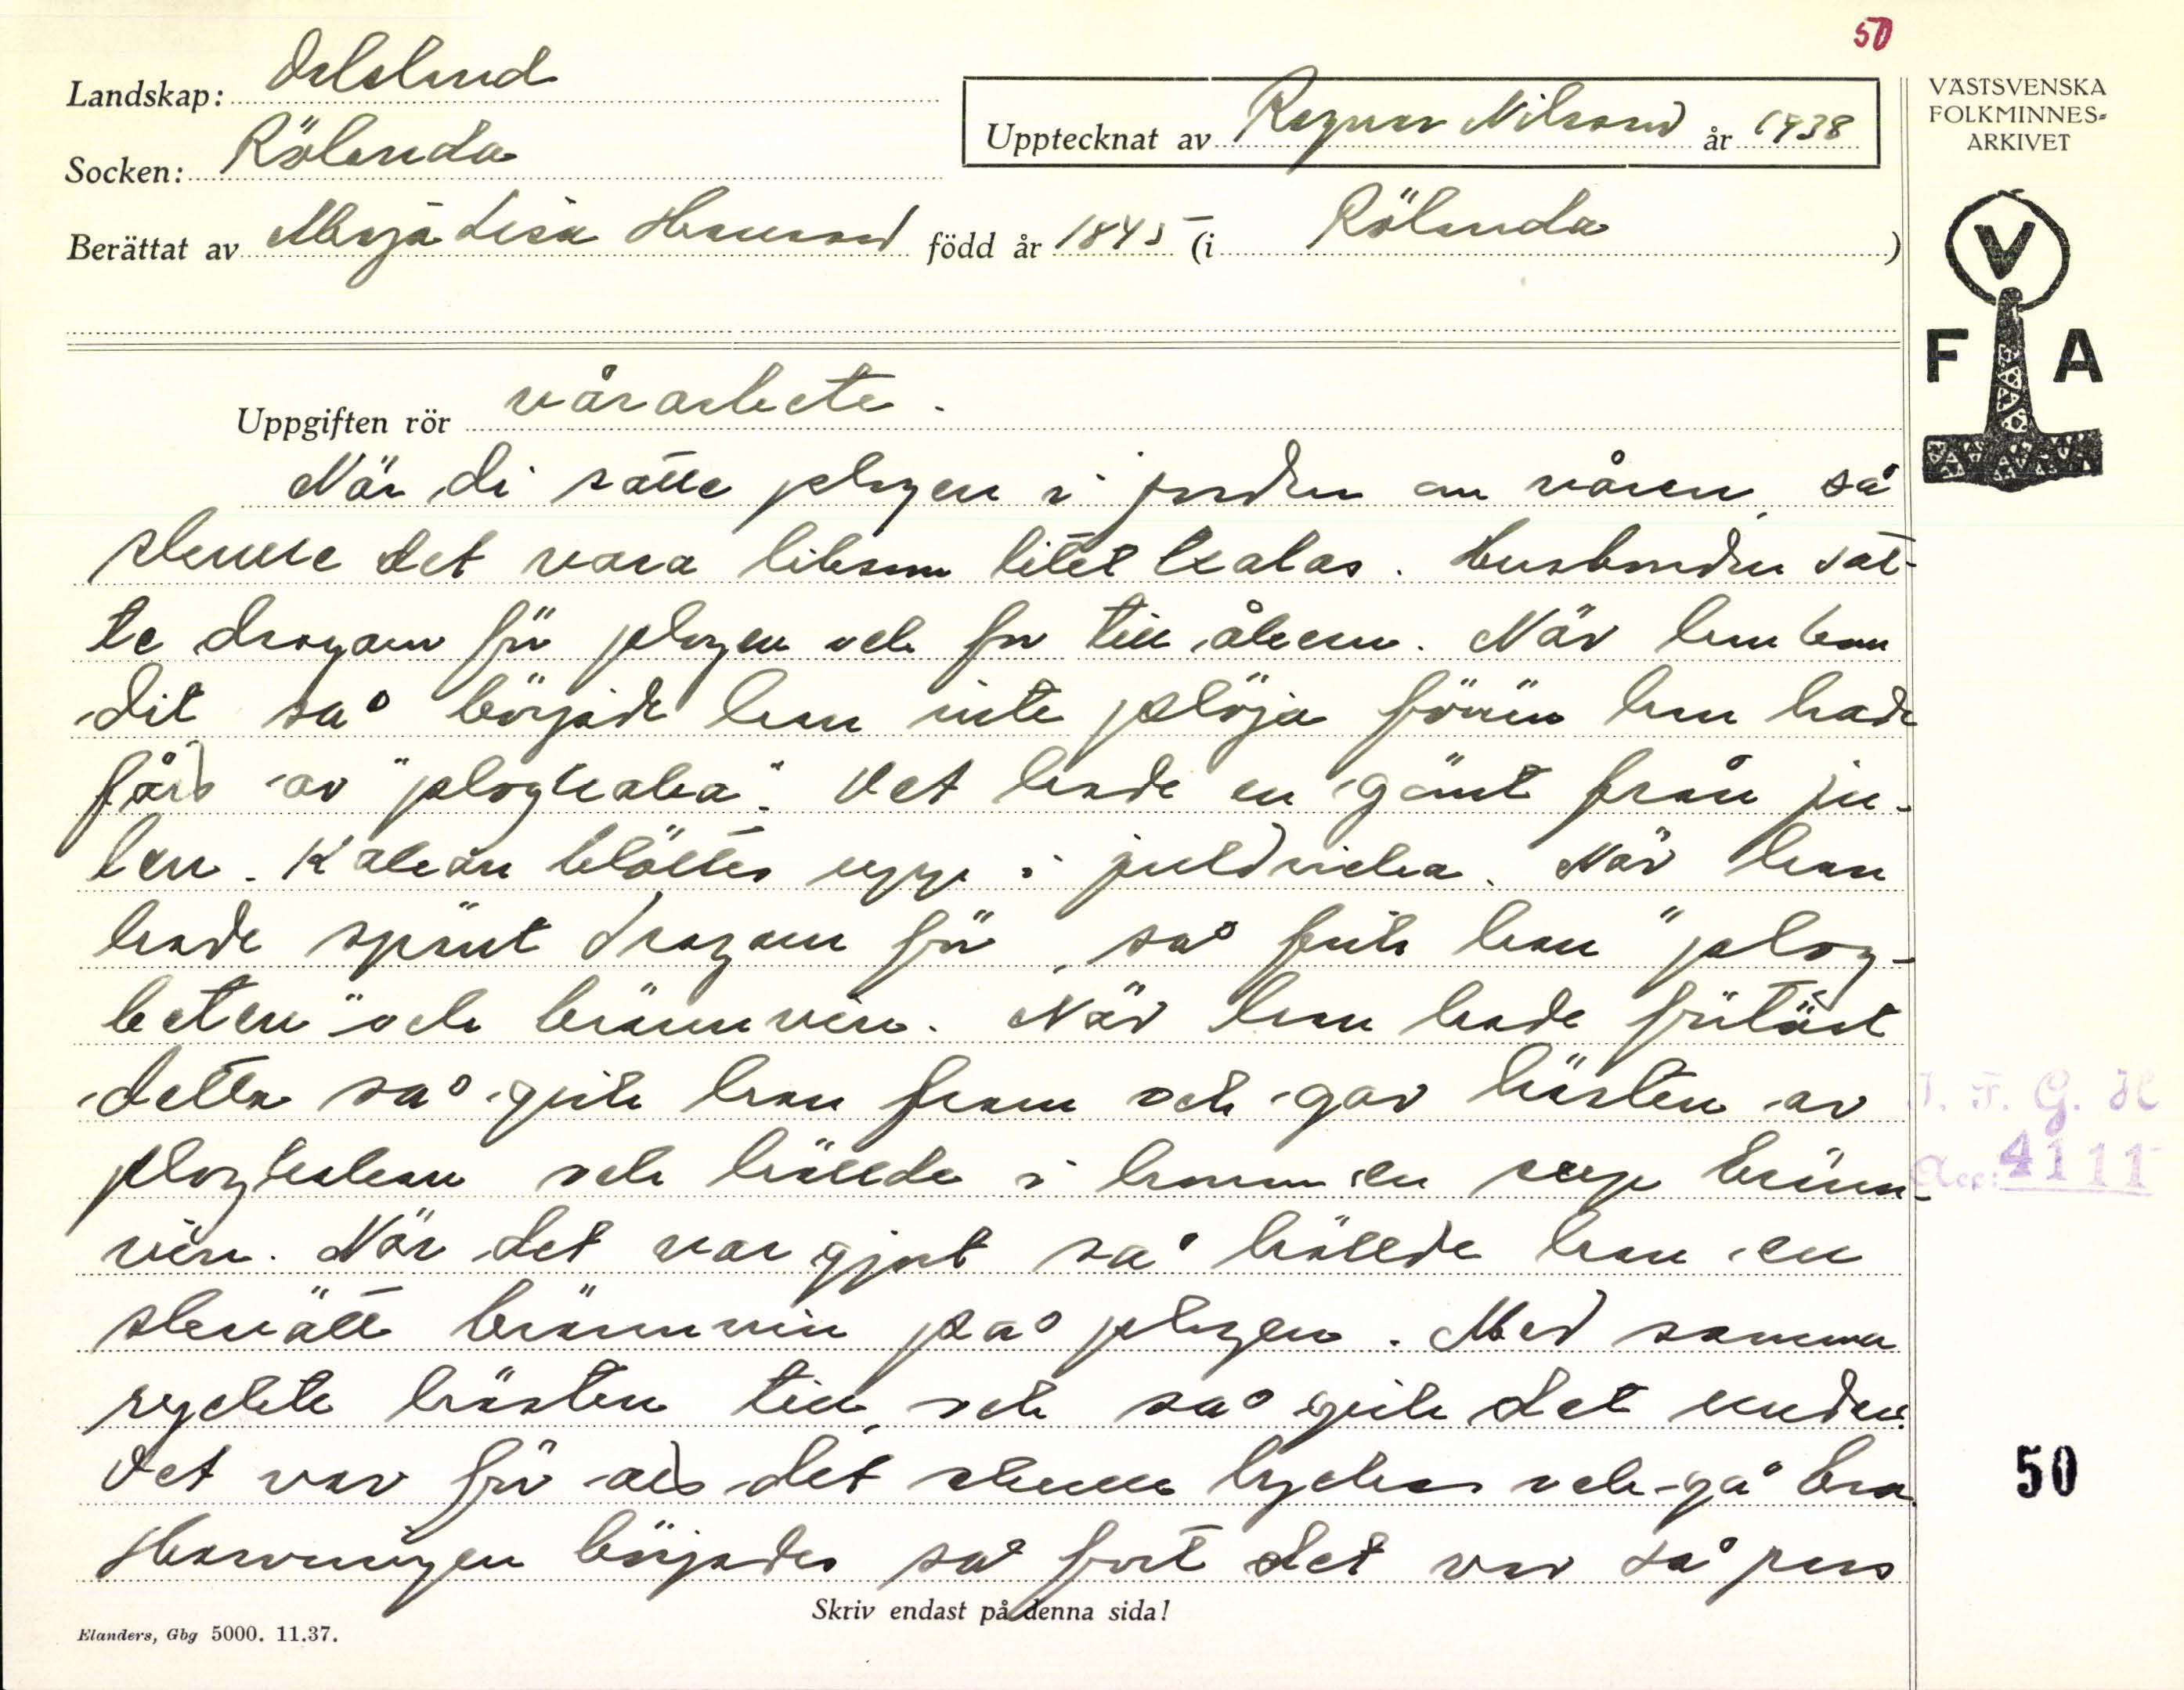 50
Landskap: Dalsland
Socken: Rölanda
Upptecknat av Ragnar Nilsson år 1938
Berättat av Maja Lisa Hansson född år 1845 (i Rölanda)
VÄSTSVENSKA
FOLKMINNES-
ARKIVET
V
F A
Uppgiften rör vårarbete.
När di satte plogen i jorden om våren, så
skulle det vara liksom litet kalas. Husbonden sat-
te dragarn för plogen och for till åkern. När han kom
dit så började han inte plöja förrän han hade
fåt av "plogkaka". Det hade en gömt från ju-
len. Kakan blöttes upp i juldricka. När han
hade spänt dragarn för, så fick han "plog-
biten" och brännvin. När han hade förtärt
detta så gick han fram och gav hästen av
plogkakan och hällde i honom en sup bränn-
vin. När det var gjort så hällde han en
skvätt brännvin på plogen. Med samma
ryckte hästen till, och så gick det undan.
Det var för att det skulle lyckas och gå bra.
Harvningen börjades så fort det var så pass
Skriv endast på denna sida!
Elanders, Gbg 5000. 11.37.
I. F. G. H
Acc: 4111
50